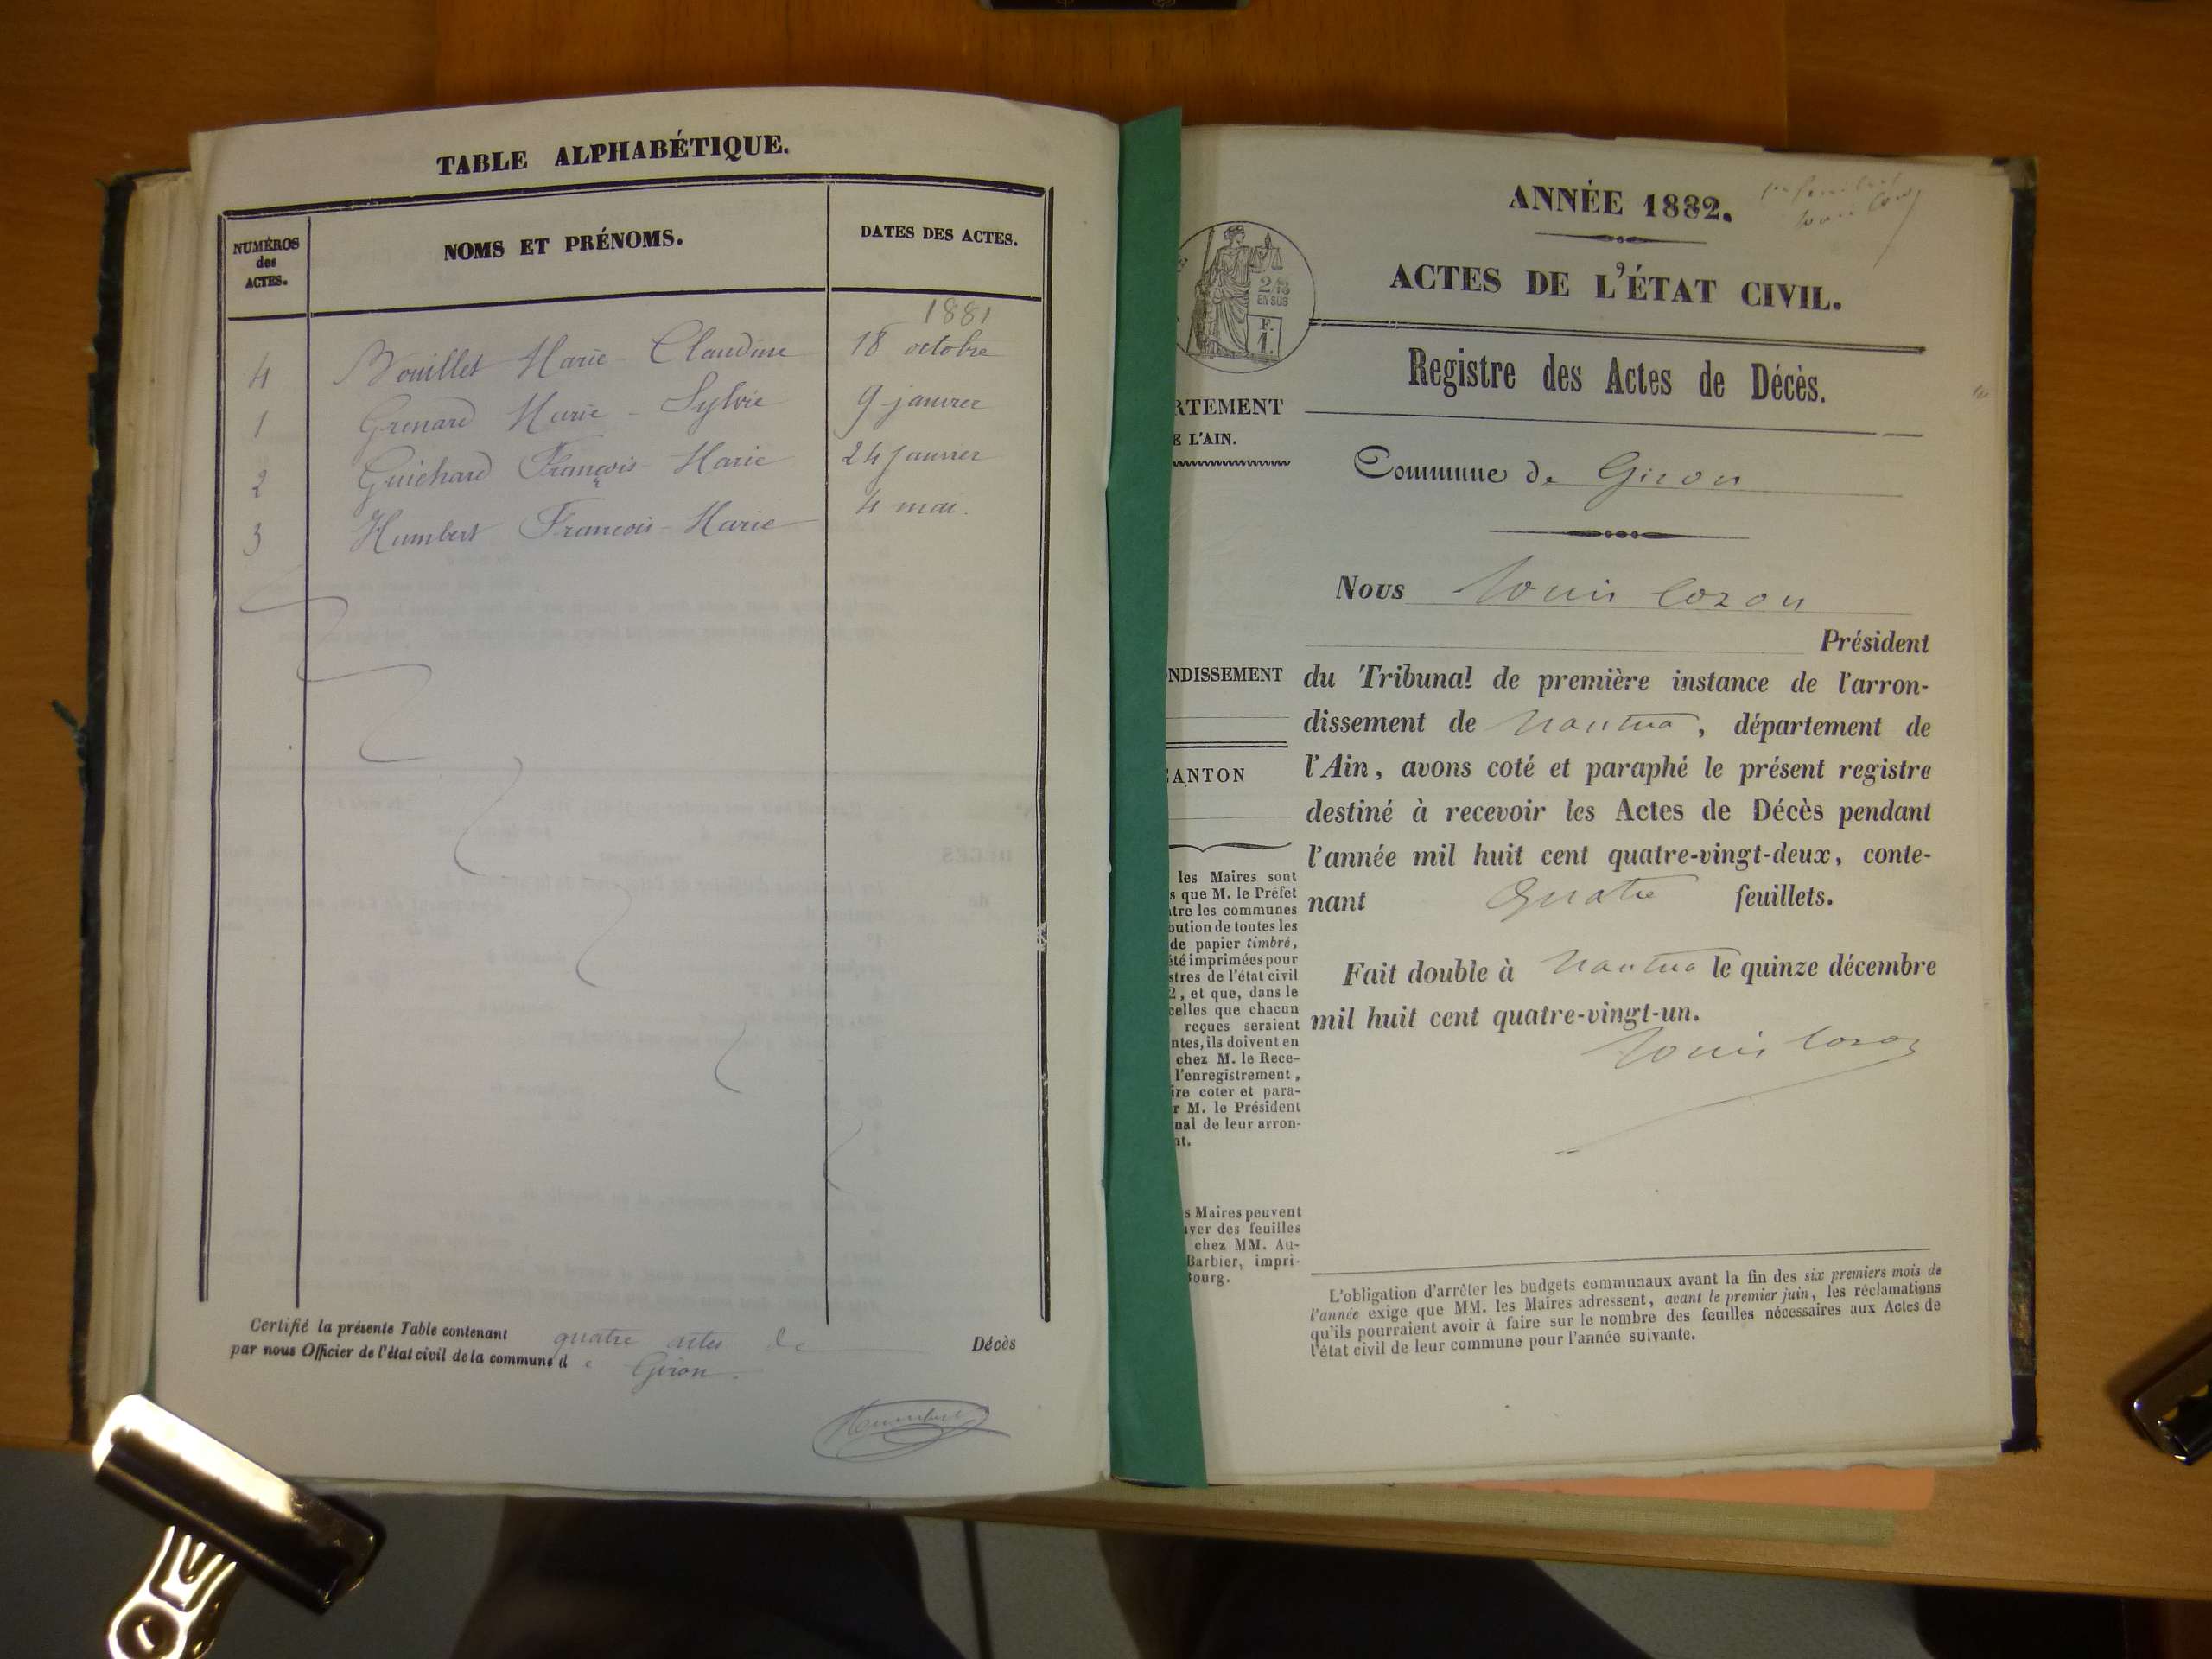 TABLE ALPHABÉTIQUE.
NUMÉROS
des
ACTES.
NOMS ET PRÉNOMS.
DATES DES ACTES.
1881
4 Bouillet Marie-Claudine 18 octobre
1 Grenard Marie-Sylvie 9 janvier
2 Guichard François-Marie 24 Janvier
3 Humbert François-Marie 4 mai.
Certifié la présente Table contenant quatre actes de Décès
par nous Officier de l'état civil de la commune de Giron.
Humbert
ANNÉE 1882.
Louis Cozon
ACTES DE L'ÉTAT CIVIL.
2/10
EN SUS
F.
1.
Registre des Actes de Décès.
RTEMENT
E L'AIN.
Commune de Giron
Nous Louis Cozon
Président
NDISSEMENT
du Tribunal de première instance de l'arron-
dissement de Nantua, département de
ANTON
l'Ain, avons coté et paraphé le présent registre
destiné à recevoir les Actes de Décès pendant
l'année mil huit cent quatre-vingt-deux, conte-
nant Quatre feuillets.
Fait double à Nantua le quinze décembre
mil huit cent quatre-vingt-un.
Louis Cozon
les Maires sont
s que M. le Préfet
tre les communes
bution de toutes les
de papier timbré,
été imprimées pour
stres de l'état civil
2, et que, dans le
celles que chacun
reçues seraient
ntes, ils doivent en
chez M. le Rece-
l'enregistrement,
ire coter et para-
r M. le Président
nal de leur arron-
nt.
s Maires peuvent
uver des feuilles
chez MM. Au-
Barbier, impri-
Bourg.
L'obligation d'arrêter les budgets communaux avant la fin des six premiers mois de
l'année exige que MM. les Maires adressent, avant le premier juin, les réclamations
qu'ils pourraient avoir à faire sur le nombre des feuilles nécessaires aux Actes de
l'état civil de leur commune pour l'année suivante.